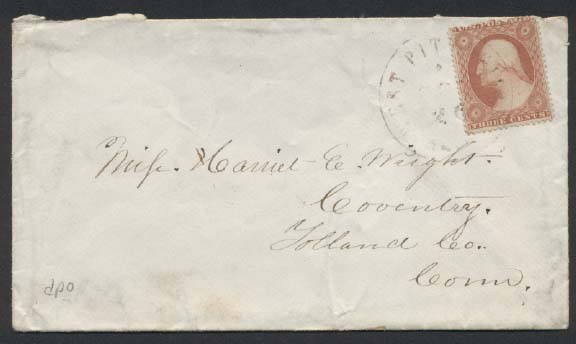 EST PIT
THREE CENTS
Miss. Harriet E. Wright.
Coventry.
Tolland Co.
Conn.
dpo